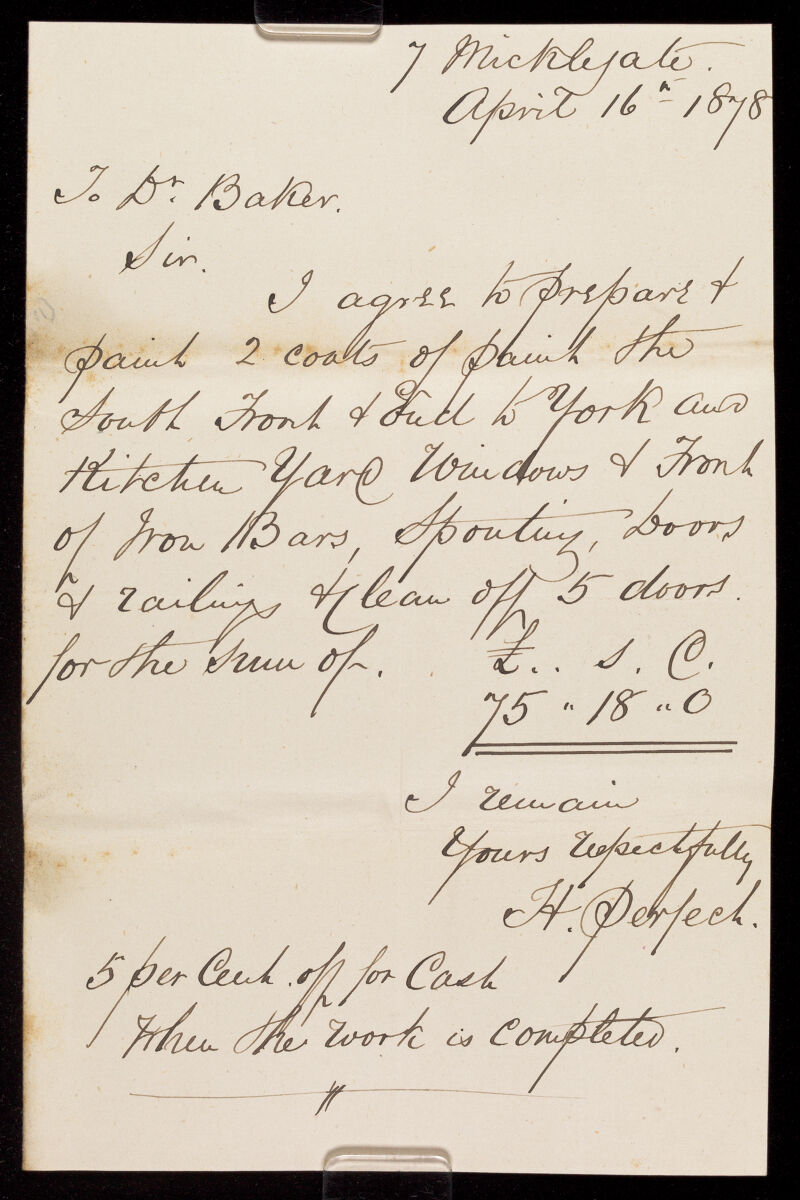 7 Micklegate.
April 16th 1878
To Dr. Baker.
Sir.
I agree to prepare &
paint 2 coats of paint the
South Front & End to York and
Kitchen Yard Windows & Front
of Iron Bars, Spouting, Doors
& railings & Clean off 5 doors.
for the sum of. £.. s. d.
75 " 18 " 0
I remain
Yours repectfully
H. Perfect.
5 per Cent. off for Cash
When the work is completed.